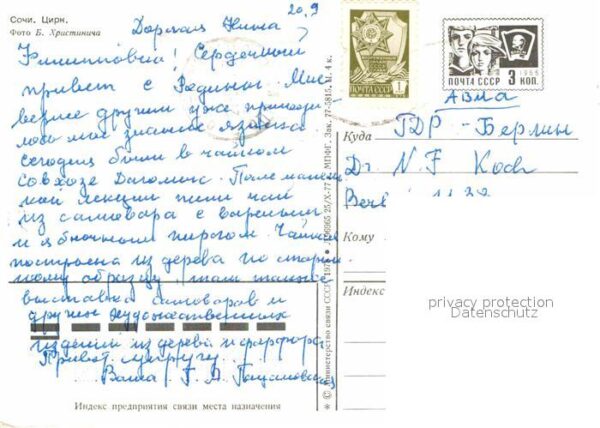 Сочи. Цирк.
Фото Б. Христинича
20.9
Дорогая Нина
Филипповна! Сердечный
привет с Родины. Мне
вернее другим уже пригоди-
лось мое знание языка
сегодня были в чайном
совхозе Дагомыс. После малень
кой лекции пили чай
из самовара с вареньем
и яблочным пирогом. Чайная
построена из дерева по старин
ному образцу, там также
выставка самоваров и
других художественных
изделий из дерева и фарфора
Привет супругу.
Ваша Г. А.
Индекс предприятия связи места назначения
* © Министерство связи СССР, 197
25/X-77 МПФГ. Зак. 77-5815. Ц. 4 к.
ПОЧТА СССР 1
ПОЧТА СССР 3 КОП.
АВИА
Куда ГДР - Берлин
Dr. N. F. Koch
1122
Кому
Индекс
privacy protection
Datenschutz